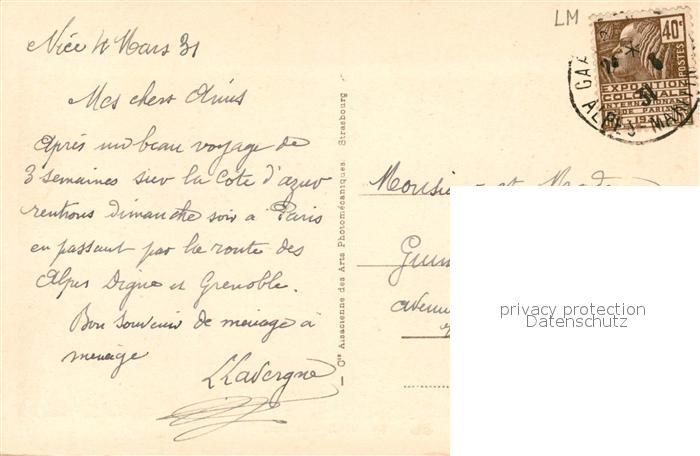 LM
Nice 4 Mars 31
Mes chers Amis
Après un beau voyage de
3 semaines sur la Cote d'azur
rentrons dimanche soir à Paris
en passant par la route des
Alpes Digne et Grenoble.
Bon souvenir de ménage à
ménage
LLavergne
— Cie Alsacienne des Arts Photomécaniques. Strasbourg
40c
POSTES
EXPOSITION
COLONIALE
INTERNATIONALE
DE PARIS
ALPES MARIT
31
Monsieur et
avenue
privacy protection
Datenschutz